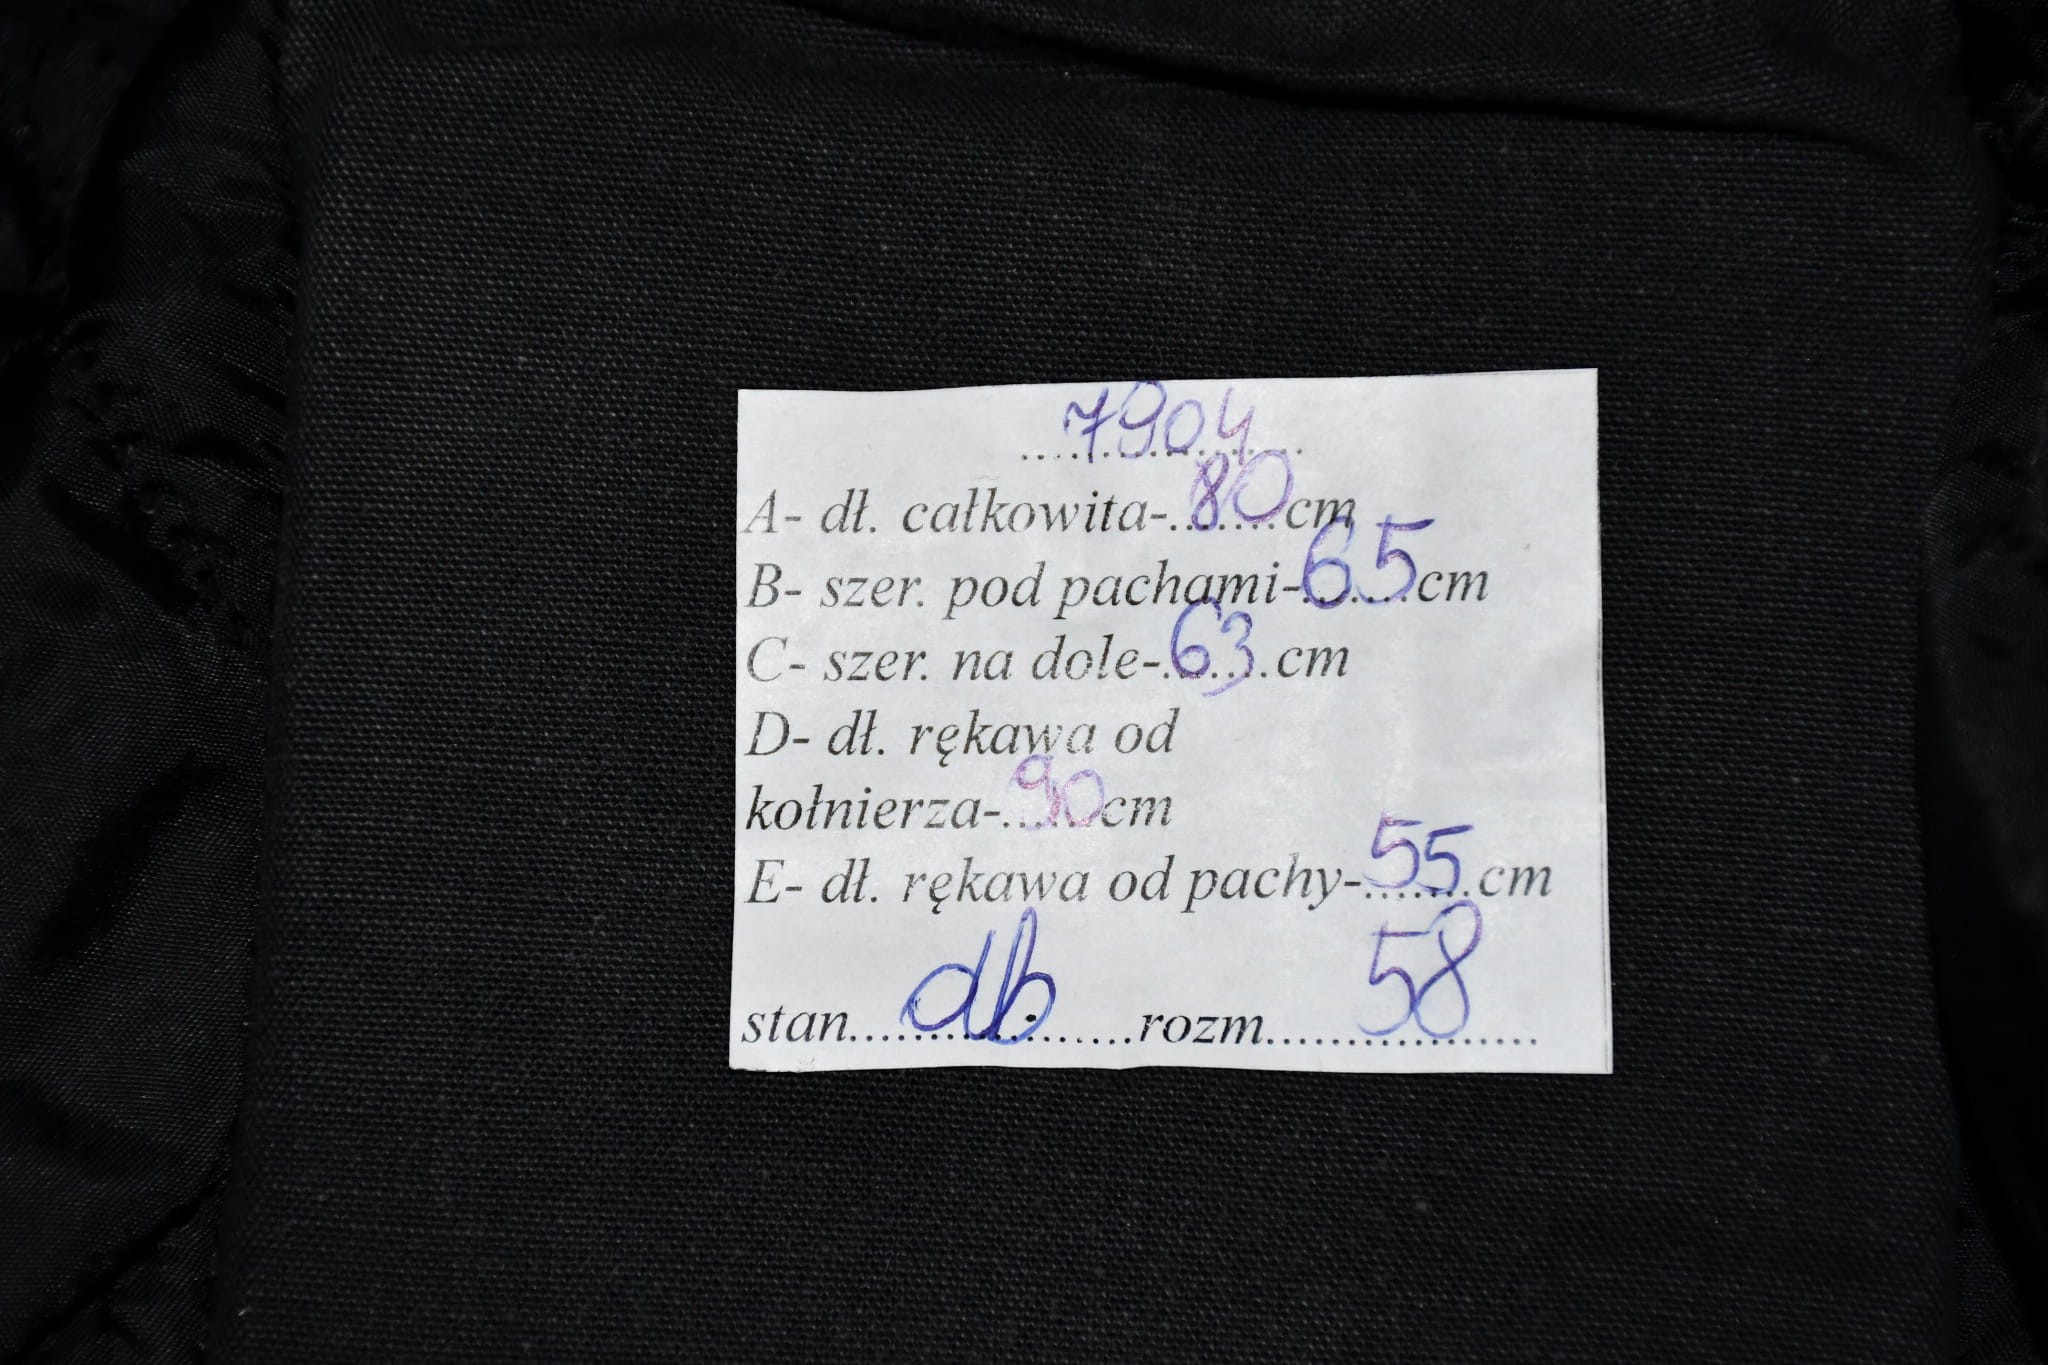 7904
A- dł. całkowita-.80.cm
B- szer. pod pachami-65cm
C- szer. na dole-.63.cm
D- dł. rękawa od
kołnierza-.90cm
E- dł. rękawa od pachy-.55.cm
stan....db.......rozm......58....